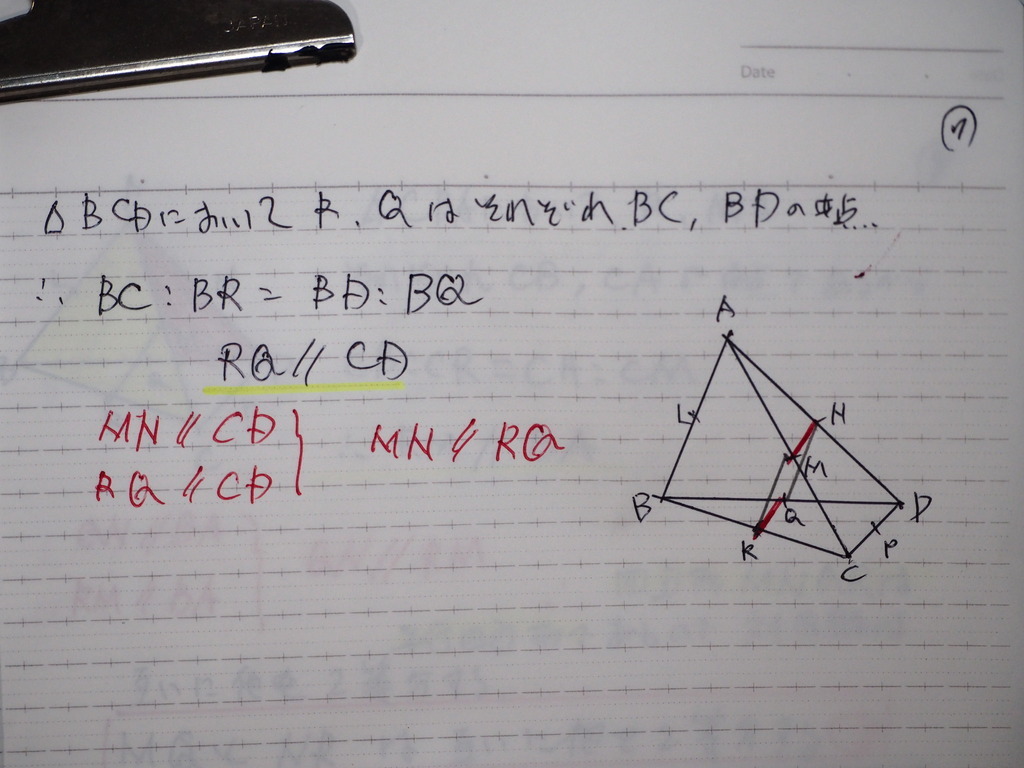 JAPAN
Date
△BCDにおいて R、Qはそれぞれ BC, BDの中点…
∴ BC : BR = BD : BQ
RQ // CD
MN // CD
RQ // CD
MN // RQ
A
L
N
M
B
Q
D
R
P
C